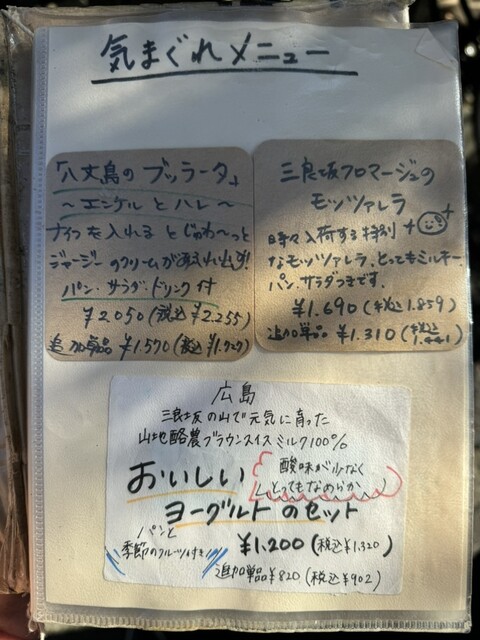 気まぐれメニュー
「八丈島のブッラータ」
〜エンケルとハレ〜
ナイフを入れるとじゅわ〜っと
ジャージーのクリームがあふれ出す!
パン・サラダ・ドリンク付
¥2050(税込¥2.255)
追加単品 ¥1.570(税込¥1.727)
三良坂フロマージュの
モッツァレラ
時々入荷する特別
なモッツァレラ、とってもミルキー。
パン・サラダつきです。
¥1.690(税込1.859)
追加単品 ¥1.310(税込1.441)
広島
三良坂の山で元気に育った
山地酪農ブラウンスイスミルク100%
おいしい
酸味が少なく
とってもなめらか
ヨーグルトのセット
パンと
季節のフルーツ付き
¥1.200(税込¥1.320)
追加単品¥820(税込¥902)